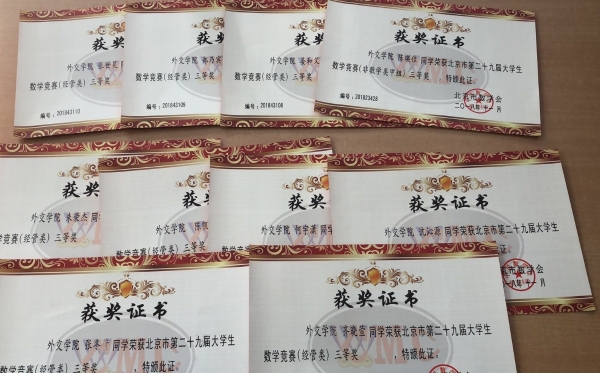 获奖证书
外交学院
数学竞赛(经管类)三等奖
编号:201843110
获奖证书
外交学院
数学竞赛(经管类)三等奖
编号:201843109
获奖证书
外交学院
数学竞赛(经管类)三等奖
编号:201843108
获奖证书
外交学院 同学荣获北京市第二十九届大学生
数学竞赛(非数学类甲组)三等奖 特颁此证。
编号:201823428
北京市数学会
二〇一八年十一月
获奖证书
外交学院 同学
数学竞赛(经管类)三等奖
获奖
外交学院
数学竞赛(经管类)三等奖
获奖
外交学院 同学
数学竞赛(经管类)三等奖
获奖证书
外交学院 同学荣获北京市第二十九届大学生
特颁此证。
市数学会
八年十一月
获奖证书
外交学院 同学荣获北京市第二十九届大学生
数学竞赛(经管类)三等奖,特颁此证。
获奖证书
外交学院 同学荣获北京市第二十九届大学生
数学竞赛(经管类)三等奖,特颁此证。